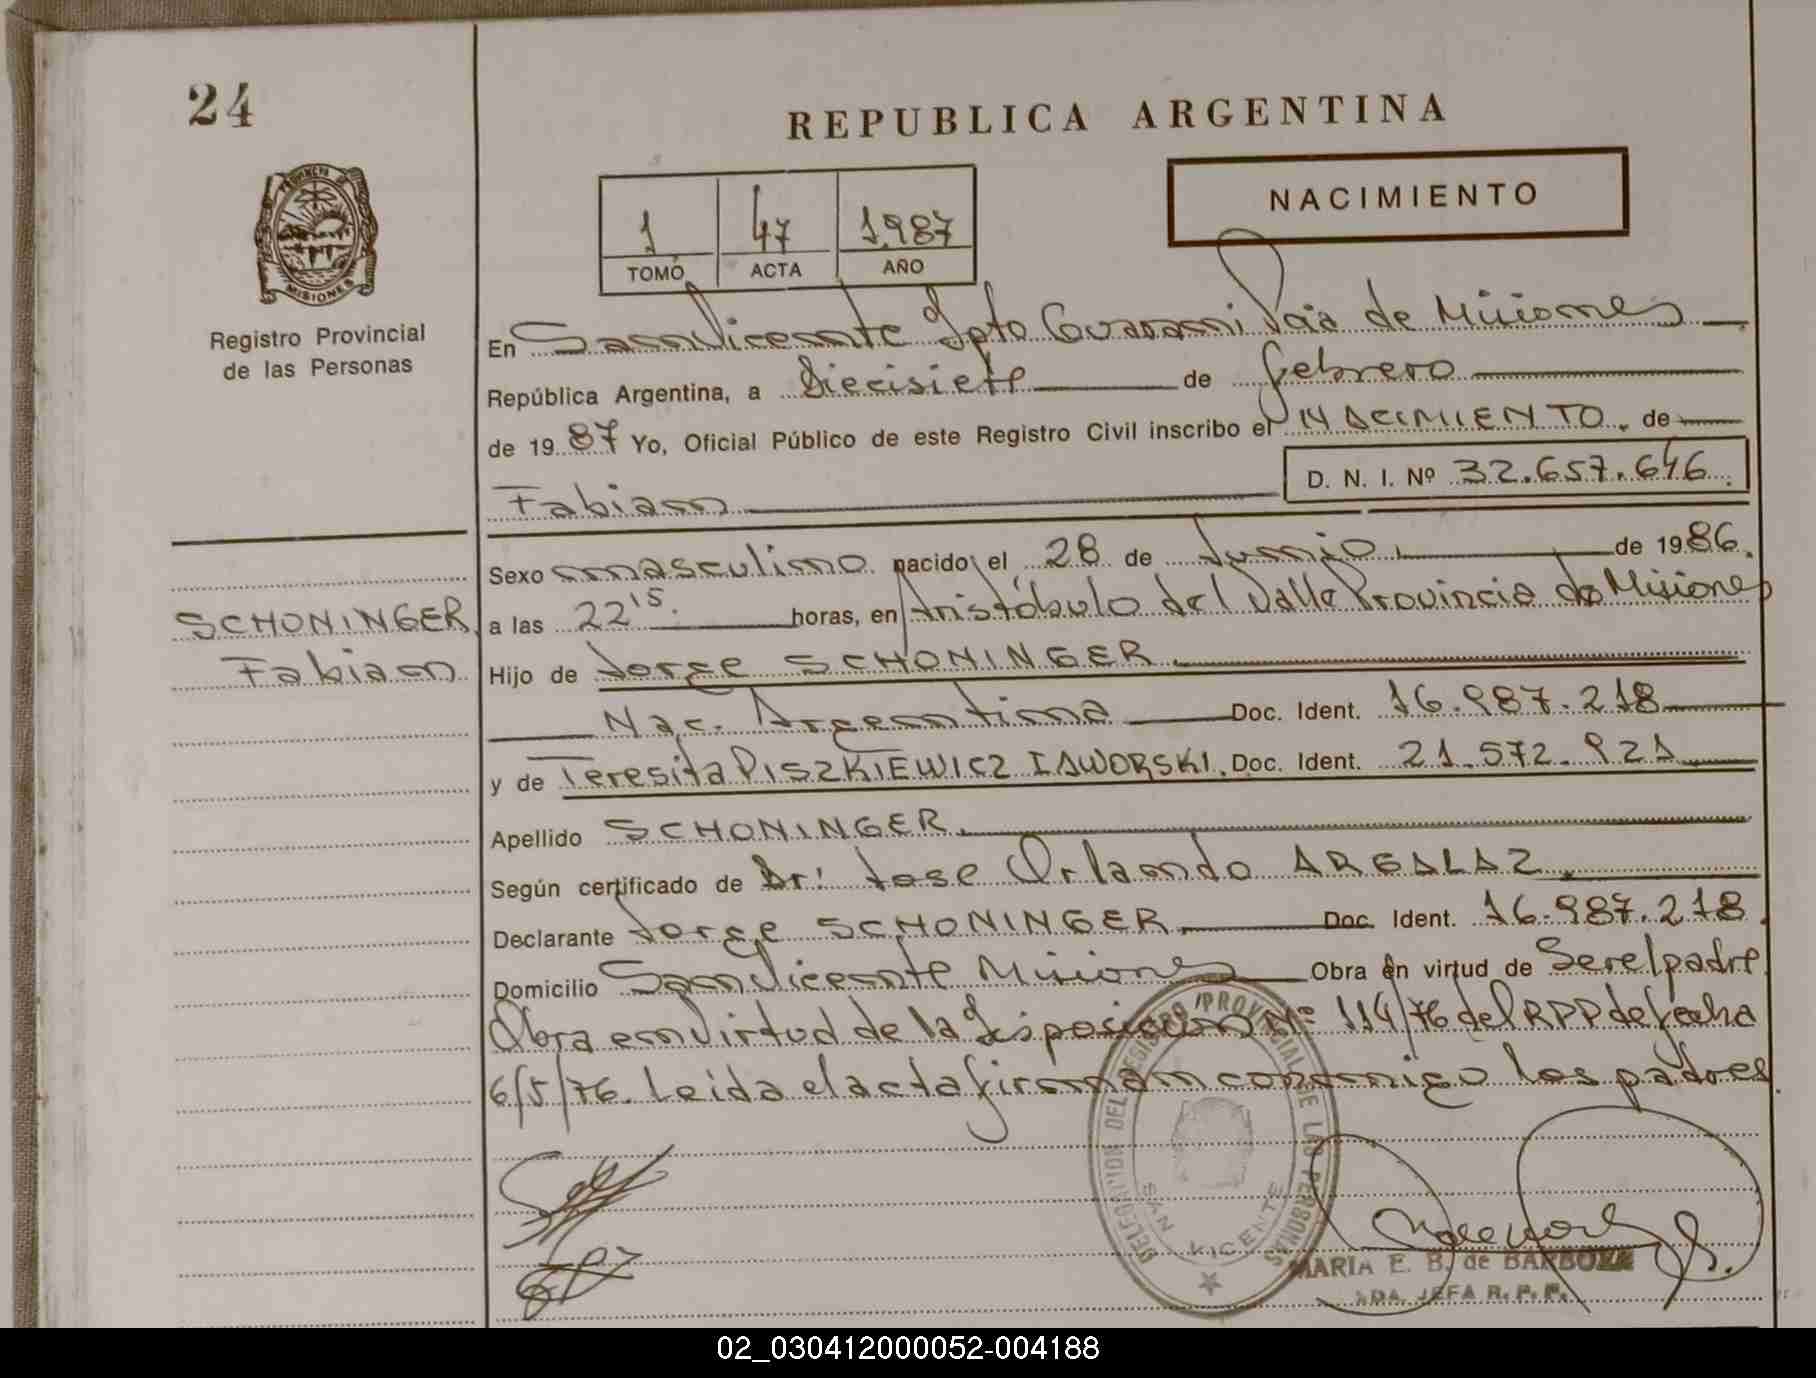 24
REPUBLICA ARGENTINA
PROVINCIA DE MISIONES
Registro Provincial
de las Personas
1 47 1987
TOMO ACTA AÑO
NACIMIENTO
En San Vicente Dpto Guarani Pcia de Misiones
República Argentina, a Diecisiete de febrero
de 1987 Yo, Oficial Público de este Registro Civil inscribo el NACIMIENTO. de
D. N. I. Nº 32.657.646.
Fabian
Sexo masculino nacido el 28 de Junio de 1986.
SCHONINGER
Fabian
a las 22 15. horas, en Aristóbulo del Valle Provincia de Misiones
Hijo de Jorge SCHONINGER
Nac. Argentina Doc. Ident. 16.987.218
y de Teresita PISZKIEWICZ IAWORSKI. Doc. Ident. 21.572.921
Apellido SCHONINGER.
Según certificado de Dr: Jose Orlando ARGALAZ.
Declarante Jorge SCHONINGER. Doc. Ident. 16.987.218.
Domicilio San Vicente Misiones Obra en virtud de Ser el padre.
Obra en virtud de la Disposicion Nº 114/76 del RPP de fecha
6/5/76. Leida el acta firman conmigo los padres.
DELEGACION DEL REGISTRO PROVINCIAL DE LAS PERSONAS
SAN VICENTE
MARIA E. B. de BARBOZA
JEFA R. P. P.
02_030412000052-004188